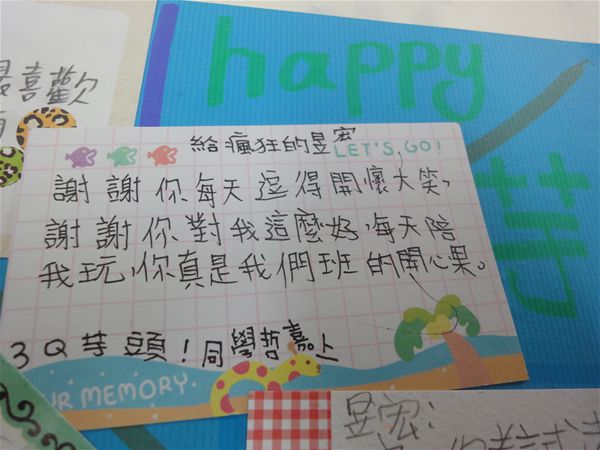 happy
喜歡
給瘋狂的昱宏
LET'S GO!
謝謝你每天逗得開懷大笑,
謝謝你對我這麼好,每天陪
我玩,你真是我們班的開心果。
芋
3Q芋頭!同學哲嘉上
UR MEMORY.
昱宏: